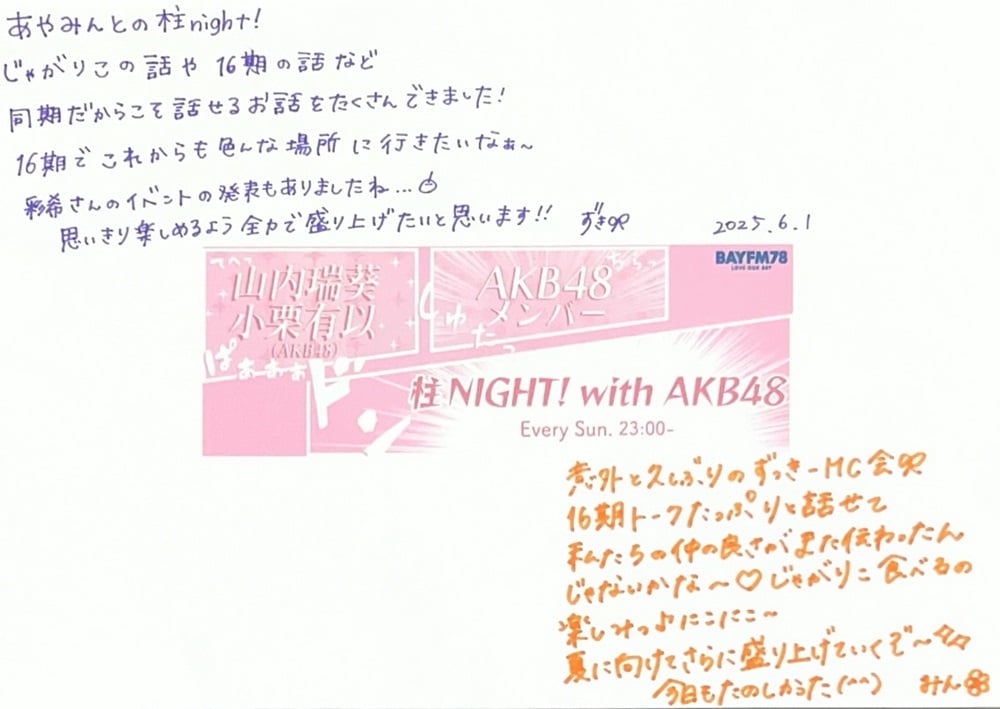 あやみんとの柱night!
じゃがりこの話や16期の話など
同期だからこそ話せるお話をたくさんできました!
16期でこれからも色んな場所に行きたいなぁ〜
彩希さんのイベントの発表もありましたね...
思いきり楽しめるよう全力で盛り上げたいと思います!! ずき
2025.6.1
てへへ
山内瑞葵
小栗有以
(AKB48)
ぱぁぁぁぁ
AKB48
メンバー
BAYFM78
LOVE OUR BAY
柱NIGHT! with AKB48
Every Sun. 23:00-
意外と久しぶりのずっきーMC会
16期トークたっぷりと話せて
私たちの仲の良さがまた伝わったん
じゃないかな〜♡じゃがりこ食べるの
楽しみっ♪にこにこ〜
夏に向けてさらに盛り上げていくぞ〜
今日もたのしかった(^^) みん